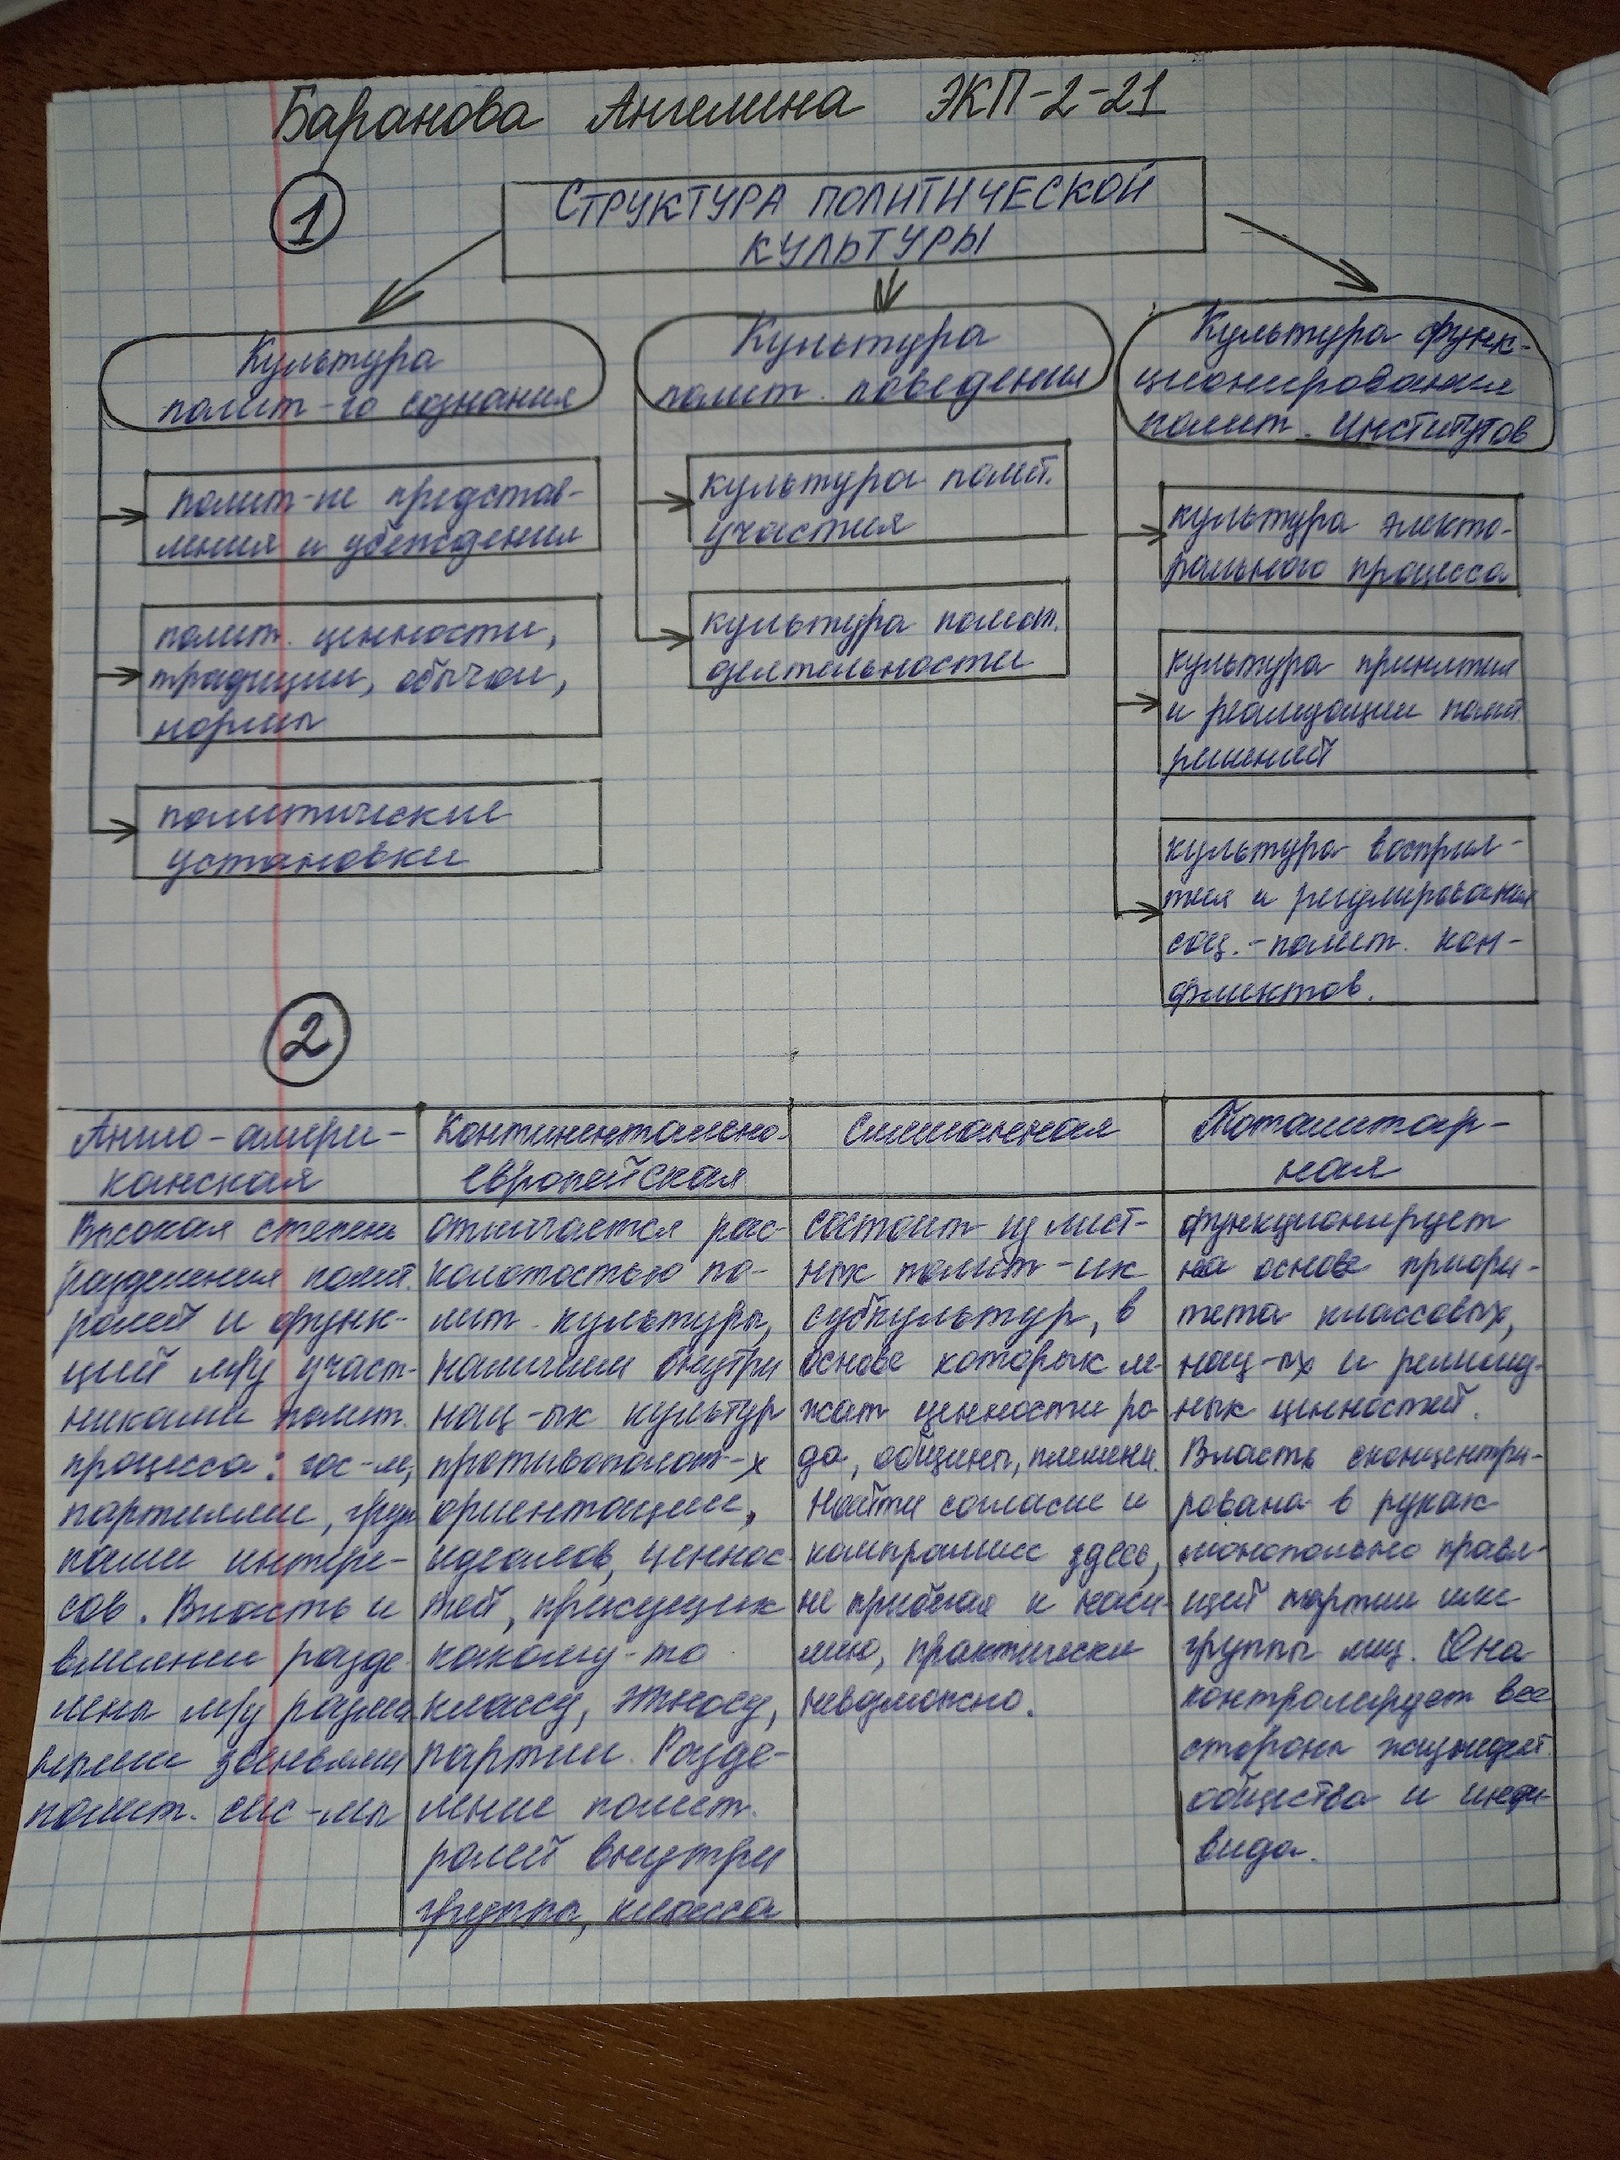 Баранова Ангелина ЭКП-2-21
1
СТРУКТУРА ПОЛИТИЧЕСКОЙ
КУЛЬТУРЫ
Культура
полит-го сознания
полит-ие представ-
ления и убеждения
полит. ценности,
традиции, обычаи,
нормы
политические
установки
Культура
полит. поведения
культура полит.
участия
культура полит.
деятельности
Культура функ-
ционирования
полит. институтов
культура электо-
рального процесса
культура принятия
и реализации полит
решений
культура восприя-
тия и регулирования
соц.-полит. кон-
фликтов.
2
Англо-амери-
канская
Высокая степень
разделения полит.
ролей и функ-
ций м/у участ-
никами полит.
процесса: гос-м,
партиями, груп
пами интере-
сов. Власть и
влияние разде
лены м/у разли
ными звеньями
полит. сис-мы
Континентально-
европейская
отличается рас-
колотостью по-
лит. культуры,
наличием внутри
нац-ых культур
противополож-х
ориентации,
идеалов, ценнос
тей, присущих
какому-то
классу, этносу,
партии. Разде-
ление полит.
ролей внутри
группы, класса
Смешанная
состоит из мест-
ных полит-их
субкультур, в
основе которых ле-
жат ценности ро
да, общины, племени.
Найти согласие и
компромисс здесь,
не прибегая к наси-
лию, практически
невозможно.
Тоталитар-
ная
функционирует
на основе приори-
тета классовых,
нац-ых и религиоз-
ных ценностей.
Власть сконцентри-
рована в руках
монопольно правя-
щей партии или
группы лиц. Она
контролирует все
стороны жизнедеят.
общества и инди-
вида.